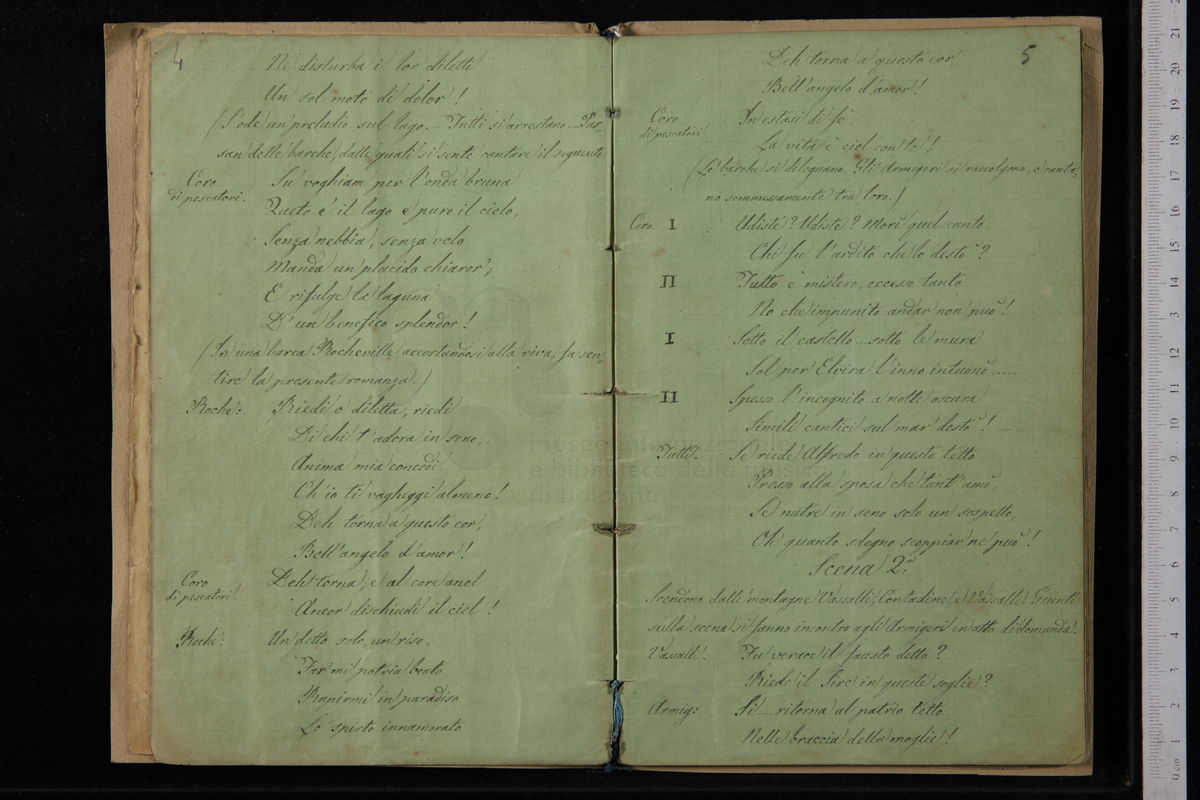 4
Nè disturba i lor diletti
Un sol moto di dolor!
(S'ode un preludio sul lago. – Tutti si arrestano – Pas-
san delle barche, dalle quali si sente cantare il seguente
Coro
di pescatori.
Su voghiam per l'onda bruna
Queto è il lago e puro il cielo,
Senza nebbia, senza velo
Manda un placido chiaror;
E rifulge la laguna
D'un benefico splendor!
(In una barca Rocheville accostandosi alla riva, fa sen-
tire la presente romanza.)
Roche: Riedi o diletta, riedi
Di chi t'adora in seno,
Anima mia concedi
Ch'io ti vagheggi almeno!
Deh torna a questo cor,
Bell'angelo d'amor!
Coro
di pescatori.
Deh torna, e al core anel
Ancor dischiudi il ciel!
Roche: Un detto solo, un riso,
Far mi potria beato
Rapirmi in paradiso
Lo spirto innamorato
5
Deh torna a questo cor
Bell'angelo d'amor!
Coro
di pescatori
In estasi di fè,
La vita è ciel con te!
(Le barche si dileguano. Gli Armigeri si raccolgono, e canta-
no sommessamente tra loro.)
Coro. I Udiste? Udiste? Morì quel canto
Chi fu l'ardito che lo destò?
II Tutto è mistero, eccesso tanto
No che impunito andar non può!
I Sotto il castello ... sotto le mura
Sol per Elvira l'inno intuonò .....
II Spesso l'incognito a notte oscura
Simili cantici sul mar destò! –
Tutti. Se riede Alfredo in questo tetto
Presso alla sposa che tant'amò,
Se nutre in seno solo un sospetto,
Oh quanto sdegno scoppiar ne può!
Scena 2.a
Scendono dalle montagne Vassalli, Contadine, e Vassalle. Giunti
sulla scena si fanno incontro agli Armigeri in atto di domanda.
Vassalli. Fu verace il fausto detto?
Riede il Sire in queste soglie?
Armig: Sì .... ritorna al patrio tetto
Nelle braccia della moglie!
museo internazionale
e biblioteca della musica
di bologna
0 cm 1 2 3 4 5 6 7 8 9 10 11 12 13 14 15 16 17 18 19 20 21